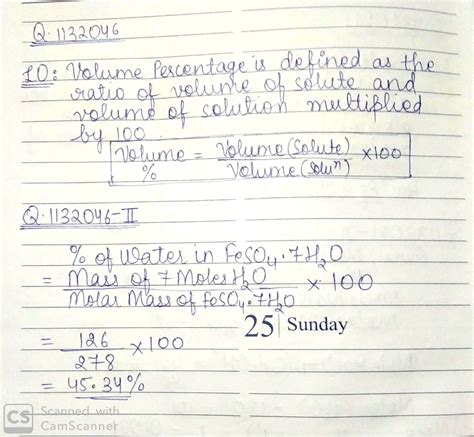 Q. 1132046
LO: Volume Percentage is defined as the
ratio of volume of solute and
volume of solution multiplied
by 100.
Volume % = Volume (Solute) / Volume (Soluⁿ) × 100
Q. 1132046-II
% of Water in FeSO₄·7H₂O
= Mass of 7 Moles H₂O / Molar Mass of FeSO₄·7H₂O × 100
25 Sunday
= 126 / 278 × 100
= 45.34%
CS Scanned with
CamScanner